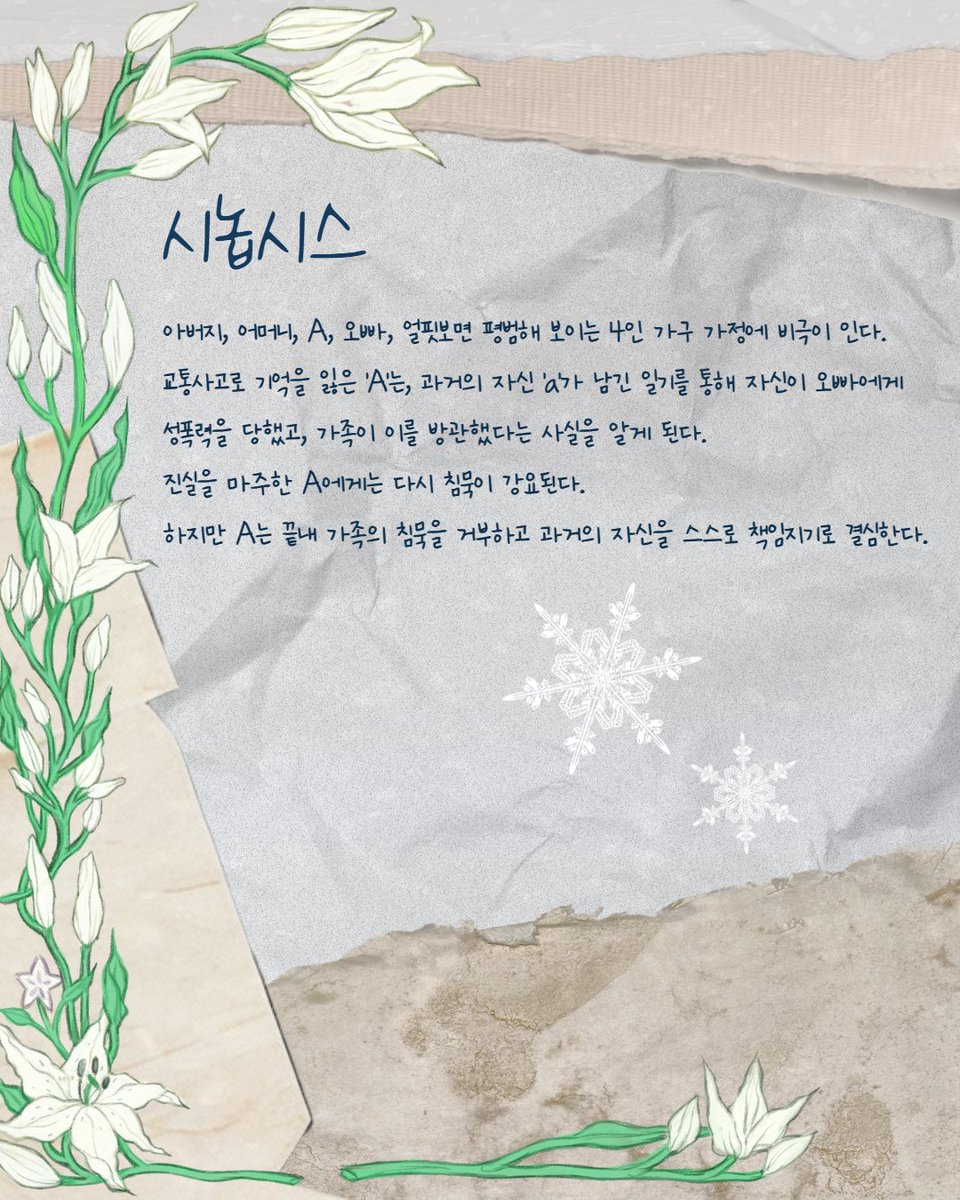 시놉시스
아버지, 어머니, A, 오빠, 얼핏보면 평범해 보이는 4인 가구 가정에 비극이 인다.
교통사고로 기억을 잃은 'A'는, 과거의 자신 'a'가 남긴 일기를 통해 자신이 오빠에게
성폭력을 당했고, 가족이 이를 방관했다는 사실을 알게 된다.
진실을 마주한 A에게는 다시 침묵이 강요된다.
하지만 A는 끝내 가족의 침묵을 거부하고 과거의 자신을 스스로 책임지기로 결심한다.